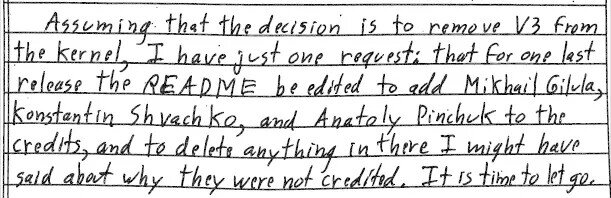 Assuming that the decision is to remove V3 from
the kernel, I have just one request: that for one last
release the README be edited to add Mikhail Gilula,
Konstantin Shvachko, and Anatoly Pinchuk to the
credits, and to delete anything in there I might have
said about why they were not credited. It is time to let go.